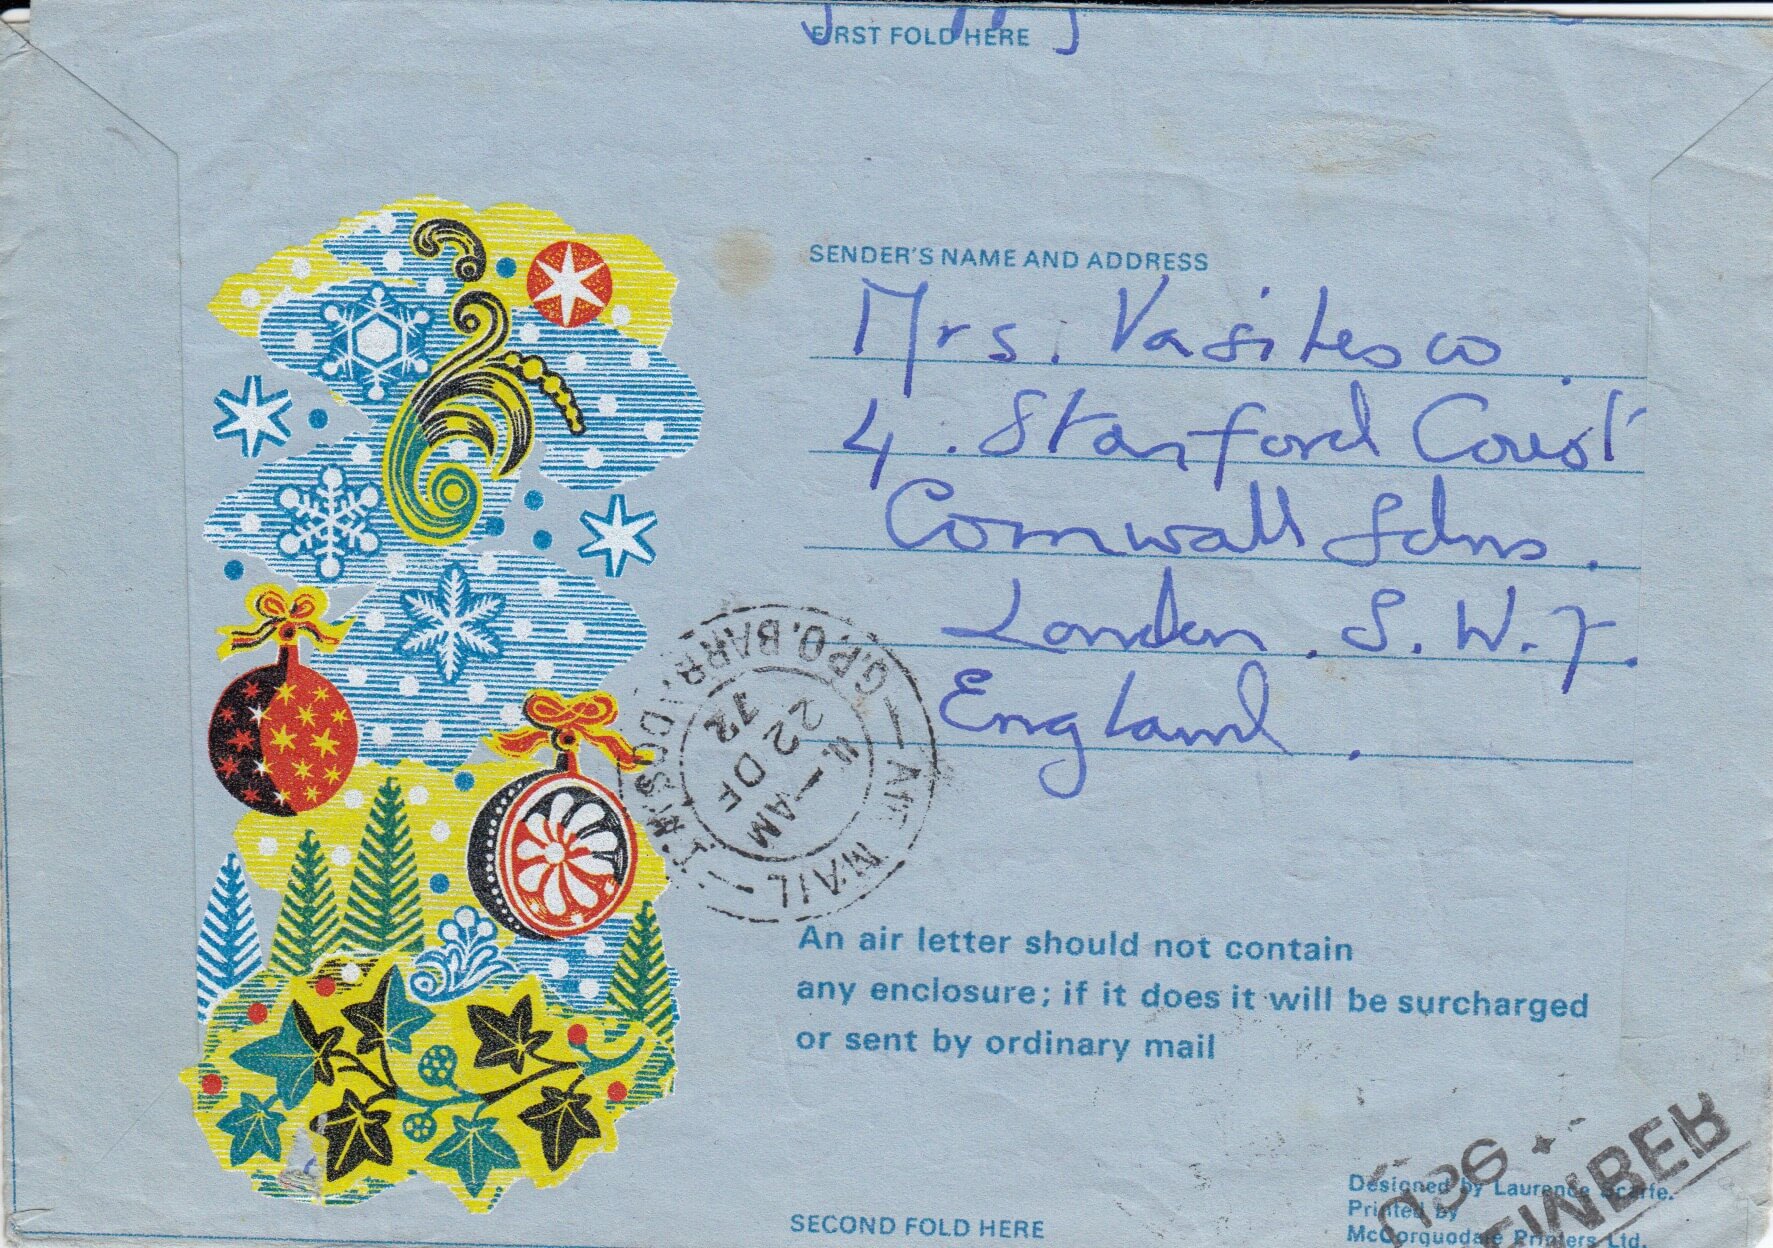 FIRST FOLD HERE
SENDER'S NAME AND ADDRESS
Mrs. Vasilesco.
4. Stanford Court
Cornwall Gdns.
London. S. W. 7.
England.
G.P.O. BARBADOS W.I.
AIR MAIL
11 - AM
22 DE
72
An air letter should not contain
any enclosure; if it does it will be surcharged
or sent by ordinary mail
Designed by Laurence Scarfe.
Printed by
McCorquodale Printers Ltd.
SECOND FOLD HERE